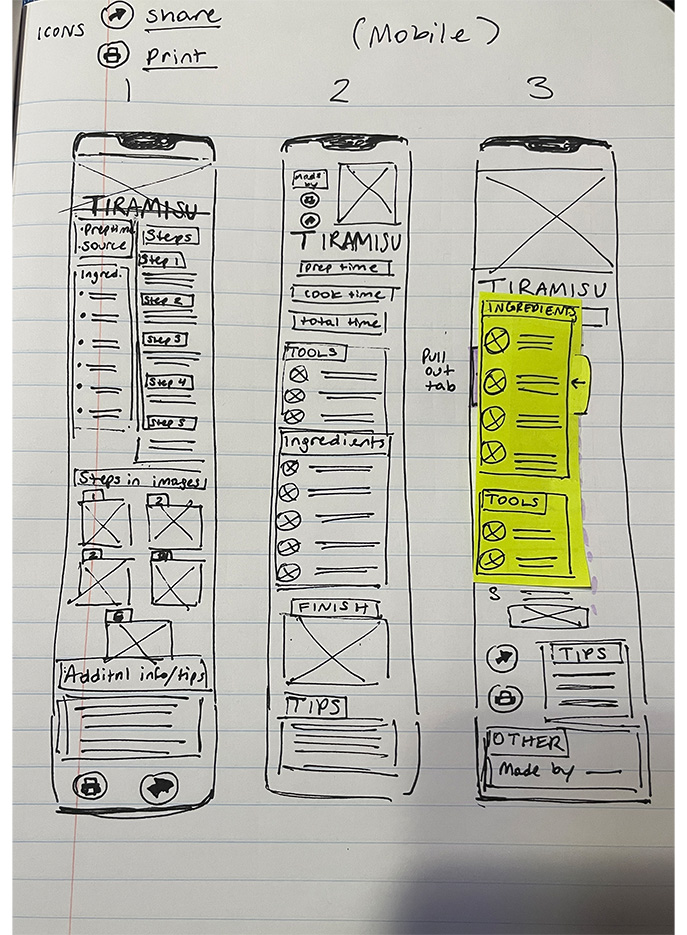 ICONS
share
Print
(Mobile)
1
2
3
TIRAMISU
• Prep time
• Source
Ingred.
Steps
Step 1
Step 2
Step 3
Step 4
Step 5
Steps in images
1
2
Additnl info/tips
Made by
TIRAMISU
prep time
cook time
total time
TOOLS
Ingredients
FINISH
TIPS
TIRAMISU
INGREDIENTS
Pull
out
tab
←
TOOLS
3
TIPS
OTHER
Made by